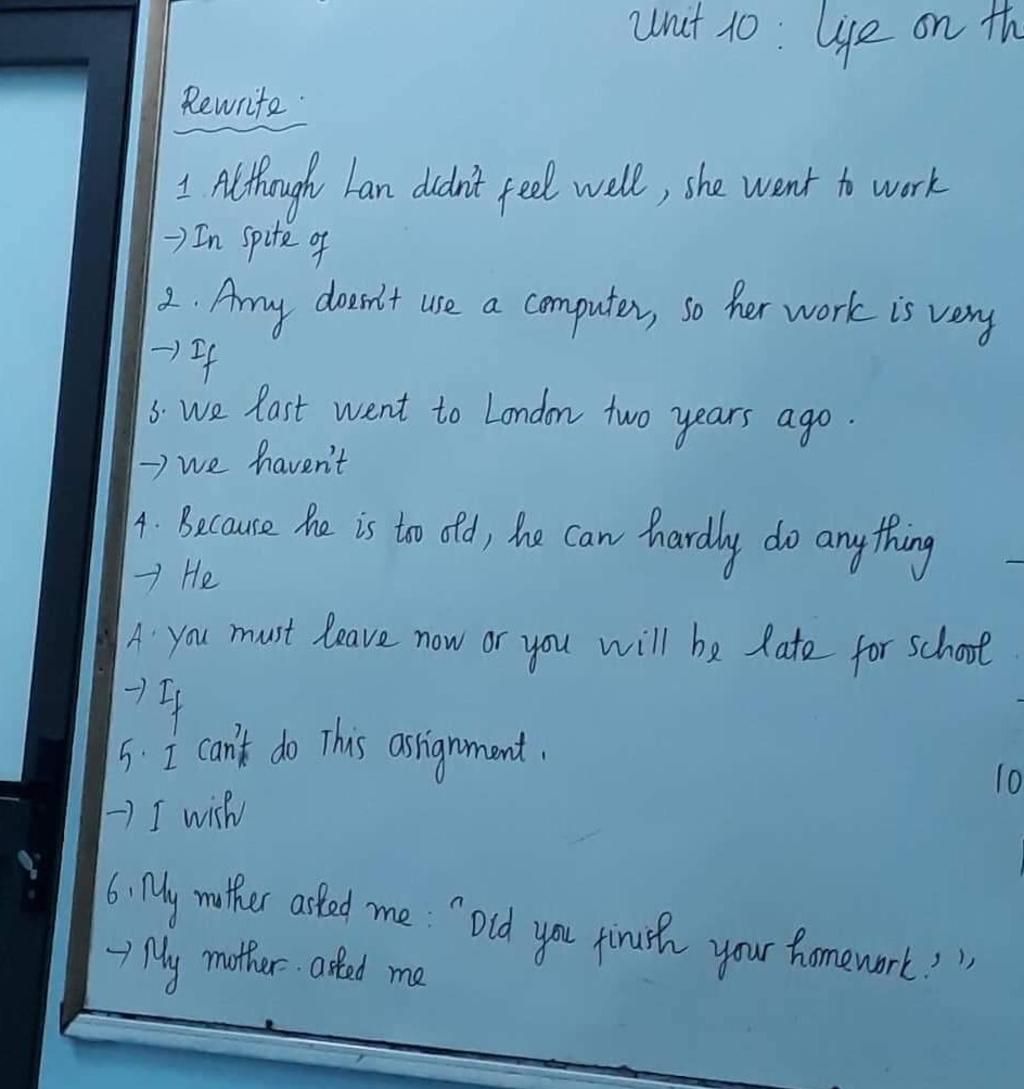 Unit 10 : Life on th
Rewrite :
1 Although Lan didn't feel well, she went to work
→ In spite of
2. Amy doesn't use a computer, so her work is very
→ If
3. We last went to London two years ago.
→ We haven't
4. Because he is too old, he can hardly do anything
→ He
A. You must leave now or you will be late for school.
→ If
5. I can't do This assignment.
→ I wish
10
6. My mother asked me : "Did you finish your homework?"
→ My mother asked me